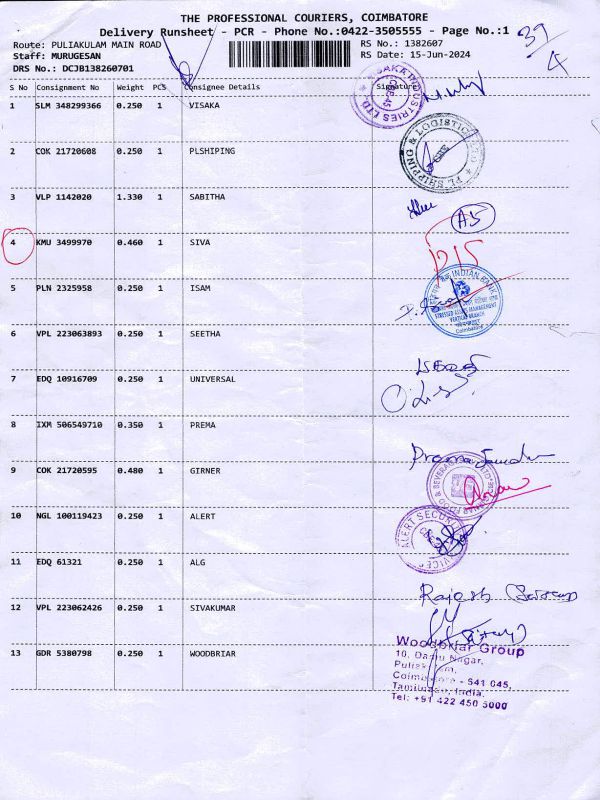 THE PROFESSIONAL COURIERS, COIMBATORE
Delivery Runsheet - PCR - Phone No.:0422-3505555 - Page No.:1
39/4
Route: PULIAKULAM MAIN ROAD RS No.: 1382607
Staff: MURUGESAN RS Date: 15-Jun-2024
DRS No.: DCJB138260701
S No Consignment No Weight PCS Consignee Details Signature
1 SLM 348299366 0.250 1 VISAKA
INDUSTRIES LTD.
CBE-45
2 COK 21720608 0.250 1 PLSHIPING
PL SHIPPING & LOGISTIC
CBE
3 VLP 1142020 1.330 1 SABITHA
A5
4 KMU 3499970 0.460 1 SIVA
D15
5 PLN 2325958 0.250 1 ISAM
INDIAN BANK
STRESSED ASSET MANAGEMENT
VERTICAL BRANCH
Coimbatore
6 VPL 223063893 0.250 1 SEETHA
7 EDQ 10916709 0.250 1 UNIVERSAL
8 IXM 506549710 0.350 1 PREMA
Prema
9 COK 21720595 0.480 1 GIRNER
& BEVERAGES
10 NGL 100119423 0.250 1 ALERT
ALERT SECURE
11 EDQ 61321 0.250 1 ALG
Rajesh
12 VPL 223062426 0.250 1 SIVAKUMAR
13 GDR 5380798 0.250 1 WOODBRIAR
Woodbriar Group
10, Nagar,
Coimbatore - 641 045,
Tamilnadu, India.
Tel: +91 422 450 5000